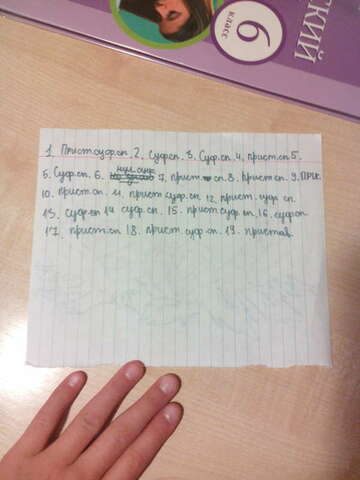 СКИЙ
6
класс
1. Прист.суф.сп. 2. Суф сп. 3. Суф. сп. 4. прист. сп. 5.
5. Суф. сп. 6. нул. суф. 7. прист. сп. 8. прист. сп. 9. ПРИС.
10. прист. сп. 11. прист суф. сп. 12. прист. суф. сп.
13. суф. сп 14 суф. сп. 15. прист суф. сп. 16. суф. сп
17. прист. сп 18. прист. суф. сп. 19. пристав.